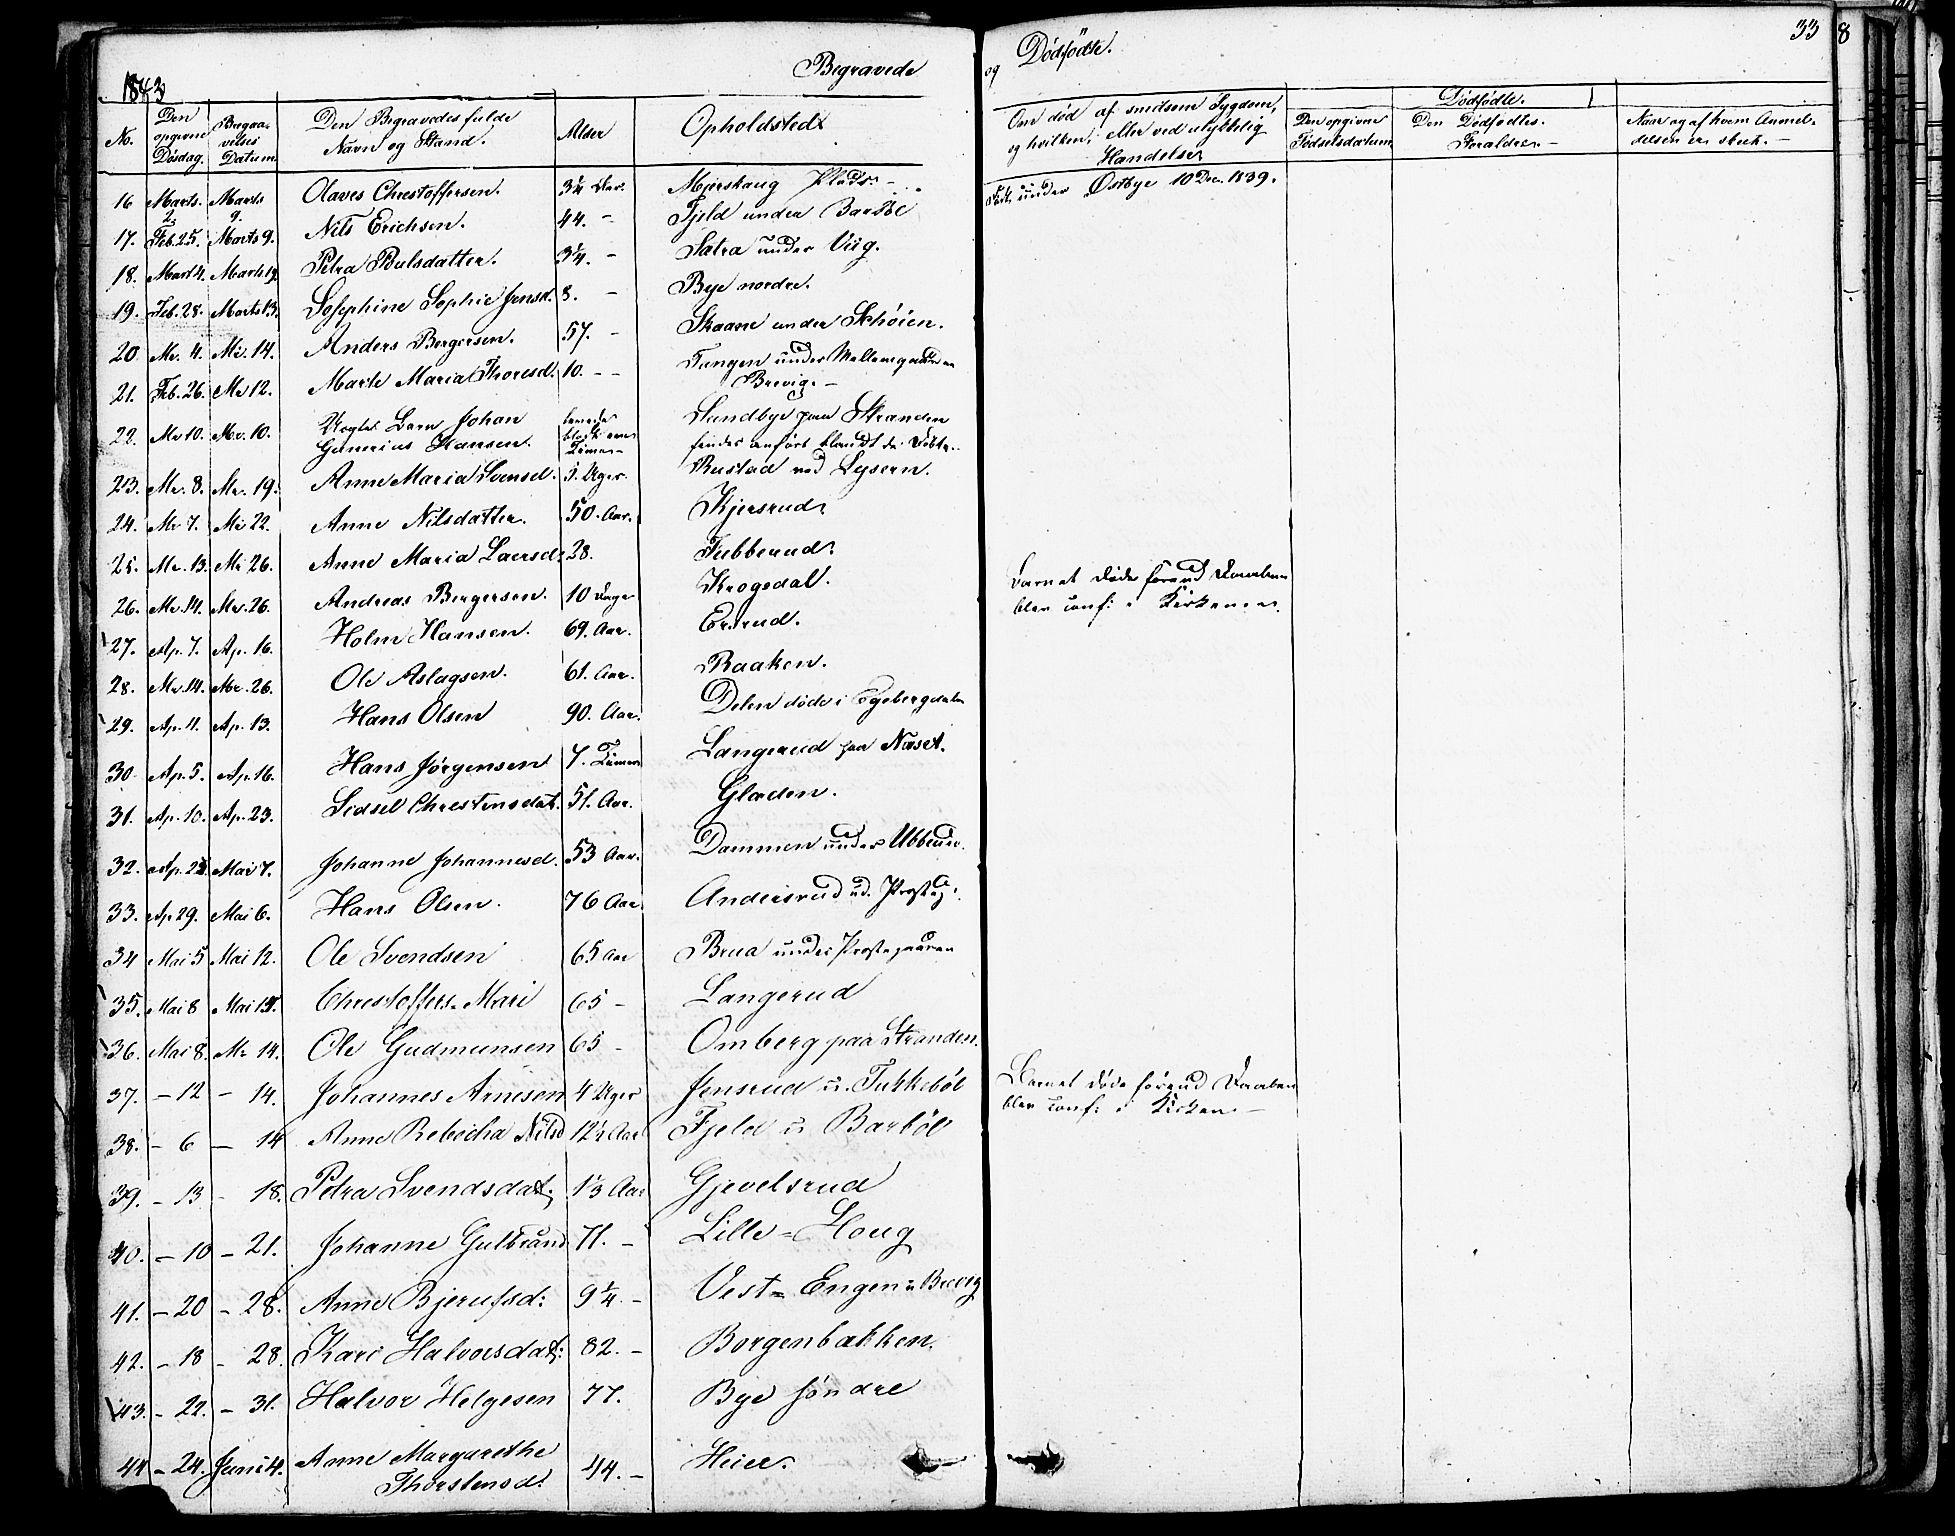 1843
Begravede
og Dødfødte.
33
8
No.
Den opgivne Dødsdag.
Begravelses Datum.
Den Begravedes fulde Navn og Stand.
Alder
Opholdsted
Om død af smitsom Sygdom, og hvilken, eller ved ulykkelig Handelser
Dødfødte.
Den opgivne Fødselsdatum
Den Dødfødtes Foraldre.
Naar og af hvem Anmeldelsen er skeet.
16 Marts. 2. Marts 9. Olaves Chrestoffersen. 3¼ Aar. Mjerskaug Plads. Født under Østbye 10 Dec. 1839.
17. Feb. 25. Marts 9. Nils Erichsen. 44. - Fjeld under Barbøl
18. Mart 4. Marts 12. Petra Poulsdatter. 3¼. - Sætra under Viig.
19. Feb. 28. Marts 13. Josephine Sophie Jensd. 8. - Bye nordre.
20 Mr. 4. Mr. 14. Anders Bergersen. 57. - Skaane under Schøien.
21. Feb. 26. Mr 12. Marte Maria Thoresd. 10. - - Tangen under Mellemgaarden
Brevig. -
22. Mr 10. Mr. 10. Barn Johan Gunerius Hansen. levede blot een Time - Sundbye paa Stranden
findes anført blandt de Døbte.
23. Mr. 8. Mr. 19. Anne Maria Svensd. 5. Uger. Rustad ved Lysern.
24. Mr 7. Mr 22. Anne Nilsdatter. 50. Aar. Kjersrud
25. Mr. 13. Mr 26. Anne Maria Laersd. 28. Tubberud.
26. Mr. 14. Mr. 26. Andreas Bergersen. 10 Dage Krogedal. Barnet døde førend Daaben
blev conf: i Kirken.
27. Ap. 7. Ap. 16. Holm Hansen. 69. Aar. Ersrud.
28. Mr. 14. Mr. 26. Ole Aslagsen. 61. Aar. Raaken.
29. Ap. 11. Ap. 13. Hans Olsen 90. Aar. Delen døde i Egebergdalen
30 Ap. 5. Ap. 16. Hans Jørgensen 7. Timer Langerud paa Næset.
31. Ap. 10. Ap. 23. Sidsel Chrestensdat. 51. Aar. Gladen.
32. Ap. 23 Mai 7. Johanne Johannesd. 53 Aar. Dammen under Ubberud.
33. Ap 29. Mai 6. Hans Olsen. 76 Aar. Andersrud ud. Prostg.
34 Mai 5 Mai 12. Ole Svendsen 65 Aar Brua under Prostegaarden
35. Mai 8 Mai 14. Chrestoffers. Mari 65 - Langerud
36. Mai 8. Mr 14. Ole Gudmunsen 65 - Omberg paa Stranden.
37. - 12 - 14. Johannes Arnesen 4 Uger Jensrud u. Tukkebøl Barnet døde førend Daaben
blev conf: i Kirken. -
38. - 6 - 14 Anne Rebecha Nilsd 12½ Aar Fjeld u Barbøl
39. - 13 - 18. Petra Svendsdat. 1⅓ Aar Gjevelsrud
40. - 10 - 21. Johanne Gulbrand 71. - Lille=Houg
41. - 20 - 28. Anne Bjerufsd: 9¼. - Vest=Engen u Brevig
42. - 18 - 28. Kari Halvorsdat: 82. - Borgenbakken.
43. - 22. - 31. Halvor Helgesen 77. Bye søndre
44 - 24. Juni 4. Anne Margarethe
Thorstensd. 44. - Heier.